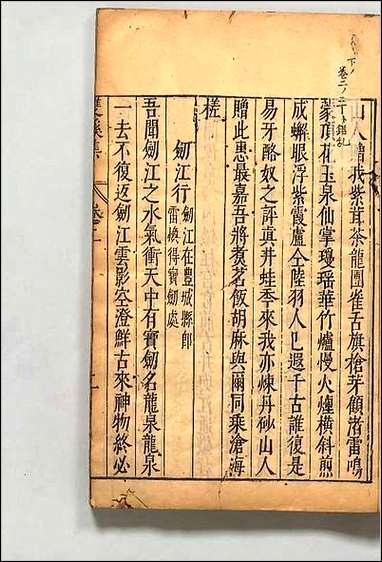 卷二ノ三十
山人贈我紫茸茶龍團雀舌旗槍芽顧渚雷鳴
蒙頂花玉泉仙掌瓊瑶華竹爐慢火煙橫斜煎
成蠏眼浮紫霞盧仝陸羽人已遐千古誰復是
易牙酪奴之評真井蛙季來我亦煉丹砂山人
贈此惠最嘉吾將煑茗飯胡麻與爾同乘滄海
槎
劒江行劒江在豐城縣卽
雷換得寶劒處
吾聞劒江之水氣衝天中有寶劒名龍泉龍泉
一去不復返劒江雲影空澄鮮古來神物終必